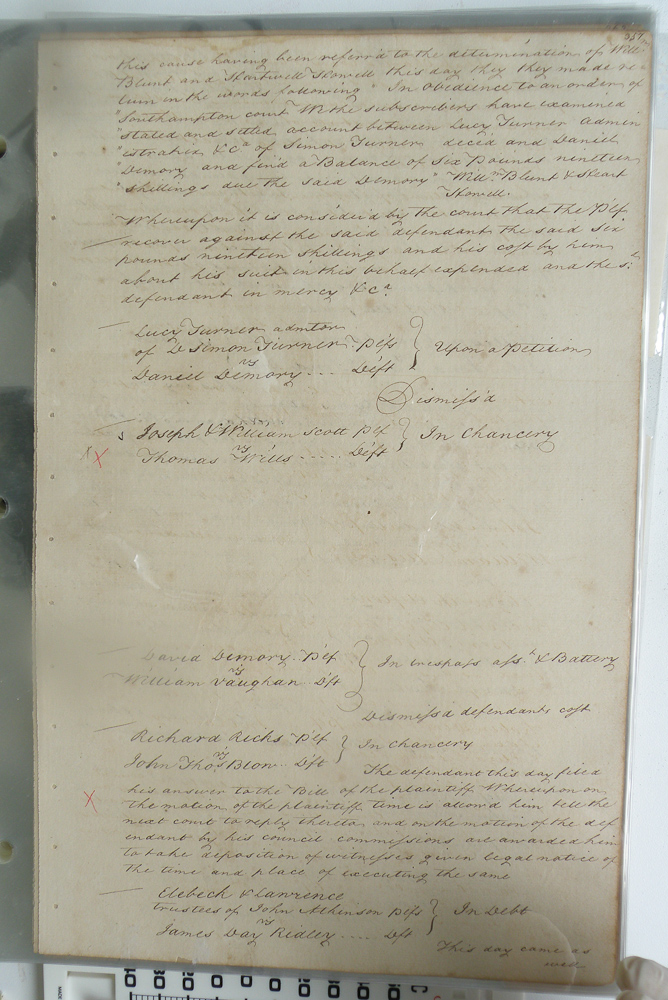 this cause having been referr'd to the determination of Will
Blunt and Hartwell Howell this day they they made re
turn in the words following " In obedience to an order of
"Southampton court We the subscribers have examined
"stated and setled account between Lucy Turner Admin
"istratrix &Ca of Simon Turner decid and Daniel
"Demory and find a Balance of Six Pounds nineteen
"shillings due the said Demory" Willm Blunt & Heart
Howell.
Whereupon it is consider'd by the court that the Plf
recover against the said defendant the said six
pounds nineteen shillings and his cost by him
about his suit in this behalf expended and the sd
defendant in mercy &ca
Lucy Turner admtor
of D Simon Turner Plfs } Upon a Petition
vs
Daniel Demory ... Deft
Dismiss'd
Joseph & William Scott Plf } In Chancery
vs
X Thomas Wills ..... Deft
David Demory Plf } In trespass asst & Battery
vs
William Vaughan Dft
Dismiss'd defendants cost
Richard Ricks Plf } In Chancery
vs
John Thos Blow Dft
The defendant this day filed
X his answer to the Bill of the plaintiff Whereupon on
the motion of the plaintiff time is allow'd him till the
next court to reply thereto and on the motion of the def
endant by his council commissions are awarded him
to take deposition of witnesses given legal notice of
the time and place of executing the same
Elebeck & Lawrence
trustees of John Atkinson Plfs } In Debt
vs
James Day Ridley .... Dft
This day came as
well